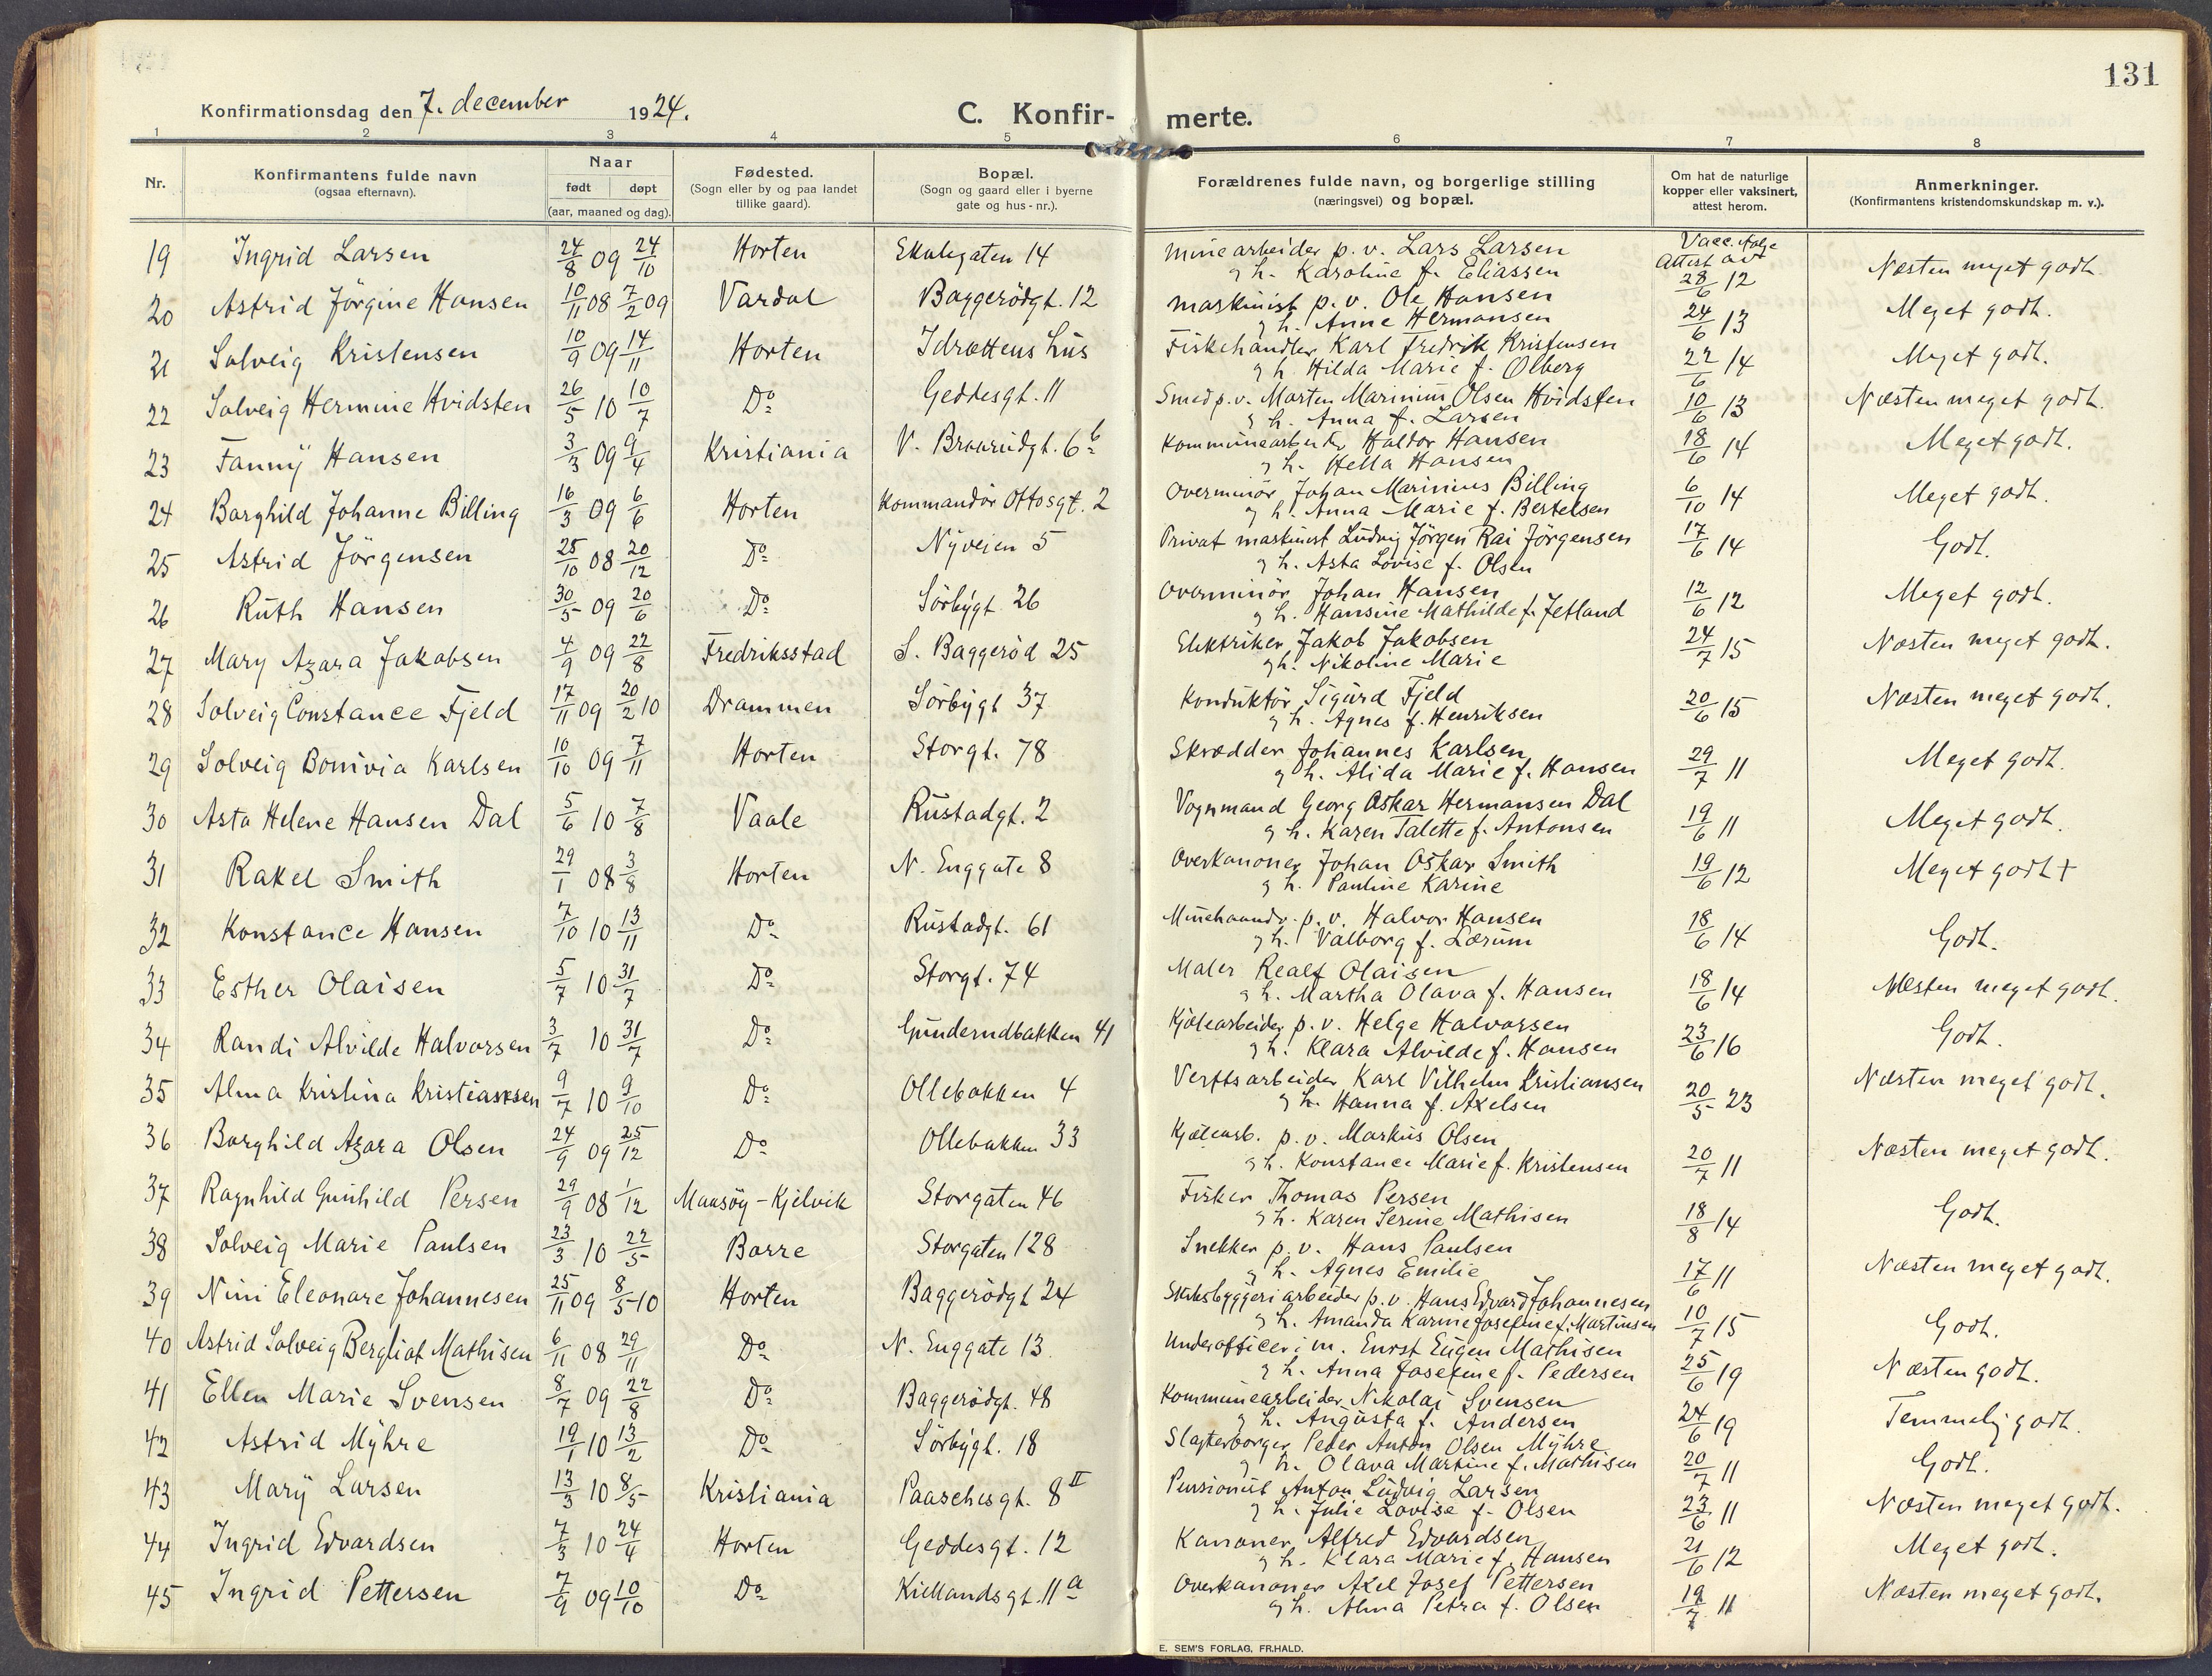 131
Konfirmationsdag den 7. december 1924.
C. Konfir- merte.
1 2 3 4 5 6 7 8
Nr.
Konfirmantens fulde navn
(ogsaa efternavn).
Naar
født døpt
(aar, maaned og dag).
Fødested.
(Sogn eller by og paa landet
tillike gaard).
Bopæl.
(Sogn og gaard eller i byerne
gate og hus-nr.).
Forældrenes fulde navn, og borgerlige stilling
(næringsvei) og bopæl.
Om hat de naturlige
kopper eller vaksinert,
attest herom.
Anmerkninger.
(Konfirmantens kristendomskundskap m. v.).
19 Ingrid Larsen 24/8 09 24/10 Horten Skolegaten 14 Minearbeider p. v. Lars Larsen Vacc. ifølge
g h. Karoline f. Eliassen Attest av 28/6 12 Næsten meget godt.
20 Astrid Jörgine Hansen 10/11 08 7/2 09 Vardal Baggerödgt. 12 Maskinist p. v. Ole Hansen
g h. Anne Hermansen 24/6 13 Meget godt.
21 Solveig Kristensen 10/9 09 14/11 Horten Idrættens hus Fiskehandler Karl Fredrik Kristensen
g h. Hilda Marie f. Olberg 22/6 14 Meget godt.
22 Solveig Hermine Hvidsten 26/5 10 10/7 Do Geddesgt. 11 Smed p. v. Morten Marinius Olsen Hvidsten
g h. Anna f. Larsen 10/6 13 Næsten meget godt.
23 Fanny Hansen 3/3 09 9/4 Kristiania V. Braarudgt. 6b Kommunearbeider Haldor Hansen
g h. Hella Hansen 18/6 14 Meget godt.
24 Borghild Johanne Billing 16/3 09 6/6 Horten Kommandör Ottosgt. 2 Overminör Johan Marinius Billing
g h. Anna Marie f. Bertelsen 6/10 14 Meget godt.
25 Astrid Jörgensen 25/10 08 20/12 Do Nyveien 5 Privat maskinist Ludvig Jörgen Rai Jörgensen
g h. Asta Lovise f. Olsen 17/6 14 Godt.
26 Ruth Hansen 30/5 09 20/6 Do Sörbygt 26 Overminör Johan Hansen
g h. Hansine Mathilde f. Jetland 12/6 12 Meget godt.
27 Mary Azora Jakobsen 4/9 09 22/8 Fredriksstad S. Baggeröd 25 Elektriker Jakob Jakobsen
g h. Nikoline Marie 24/7 15 Næsten meget godt.
28 Solveig Constance Fjeld 17/11 09 20/2 10 Drammen Sörbygt 37 Konduktör Sigurd Fjeld
g h. Agnes f. Henriksen 20/6 15 Næsten meget godt.
29 Solveig Bonivia Karlsen 10/10 09 7/11 Horten Storgt. 78 Skrædder Johannes Karlsen
g h. Alida Marie f. Hansen 29/7 11 Meget godt.
30 Asta Helene Hansen Dal 5/6 10 7/8 Vaale Rustadgt. 2 Vognmand Georg Oskar Hermansen Dal
g h. Karen Talette f. Antonsen 19/6 11 Meget godt.
31 Rakel Smith 29/1 08 3/8 Horten N. Enggate 8 Overkanoner Johan Oskar Smith
g h. Pauline Karine 19/6 12 Meget godt +
32 Konstance Hansen 7/10 10 13/11 Do Rustadgt. 61 Minehaandv. p. v. Halvor Hansen
g h. Valborg f. Lærum 18/6 14 Godt.
33 Esther Olaisen 5/7 10 31/7 Do Storgt. 74 Maler Realf Olaisen
g h. Martha Olava f. Hansen 18/6 14 Næsten meget godt.
34 Randi Alvilde Halvorsen 3/7 10 31/7 Do Gunderudbakken 41 Kjølearbeider p. v. Helge Halvorsen
g h. Klara Alvilde f. Hansen 23/6 16 Godt.
35 Alma Kristina Kristiansen 9/7 10 9/10 Do Ollebakken 4 Verftsarbeider Karl Vilhelm Kristiansen
g h. Hanna f. Axelsen 20/5 23 Næsten meget godt.
36 Borghild Azora Olsen 24/9 09 25/12 Do Ollebakken 33 Kjølearb. p. v. Markus Olsen
g h. Konstance Marie f. Kristensen 20/7 11 Næsten meget godt.
37 Ragnhild Gunhild Persen 29/9 08 1/12 Maasöy-Kjelvik Storgaten 46 Fisker Thomas Persen
g h. Karen Serine Mathisen 18/8 14 Godt.
38 Solveig Marie Paulsen 23/3 10 22/5 Borre Storgaten 128 Snekker p. v. Hans Paulsen
g h. Agnes Emilie 17/6 11 Næsten meget godt.
39 Nini Eleonore Johannesen 25/11 09 8/5 10 Horten Baggerödgt 24 Skibsbyggeriarbeider p. v. Hans Edvard Johannesen
g h. Amanda Karine Josefine f. Martinsen 10/7 15 Godt.
40 Astrid Solveig Bergliot Mathisen 6/11 08 29/11 Do N. Enggate 13 Underofficer i m. Ernst Eugen Mathisen
g h. Anna Josefine f. Pedersen 25/6 19 Næsten godt.
41 Ellen Marie Svensen 8/7 09 22/8 Do Baggerödgt. 48 Kommunearbeider Nikolai Svensen
g h. Augusta f. Andersen 24/6 19 Temmelig godt.
42 Astrid Myhre 19/1 10 13/2 Do Sörbygt. 18 Slagterborger Peder Anton Olsen Myhre
g h. Olava Martine f. Mathisen 20/7 11 Godt.
43 Mary Larsen 13/3 10 8/5 Kristiania Paaschesgt. 8 II Pensionist Anton Ludvig Larsen
g h. Julie Lovise f. Olsen 23/6 11 Næsten meget godt.
44 Ingrid Edvardsen 7/3 10 24/4 Horten Geddesgt. 12 Kanoner Alfred Edvardsen
g h. Klara Marie f. Hansen 21/6 12 Meget godt.
45 Ingrid Pettersen 7/9 09 10/10 Do Kiellandsgt. 11a Overkanoner Axel Josef Pettersen
g h. Alma Petra f. Olsen 19/7 11 Næsten meget godt.
E. SEM'S FORLAG, FR.HALD.